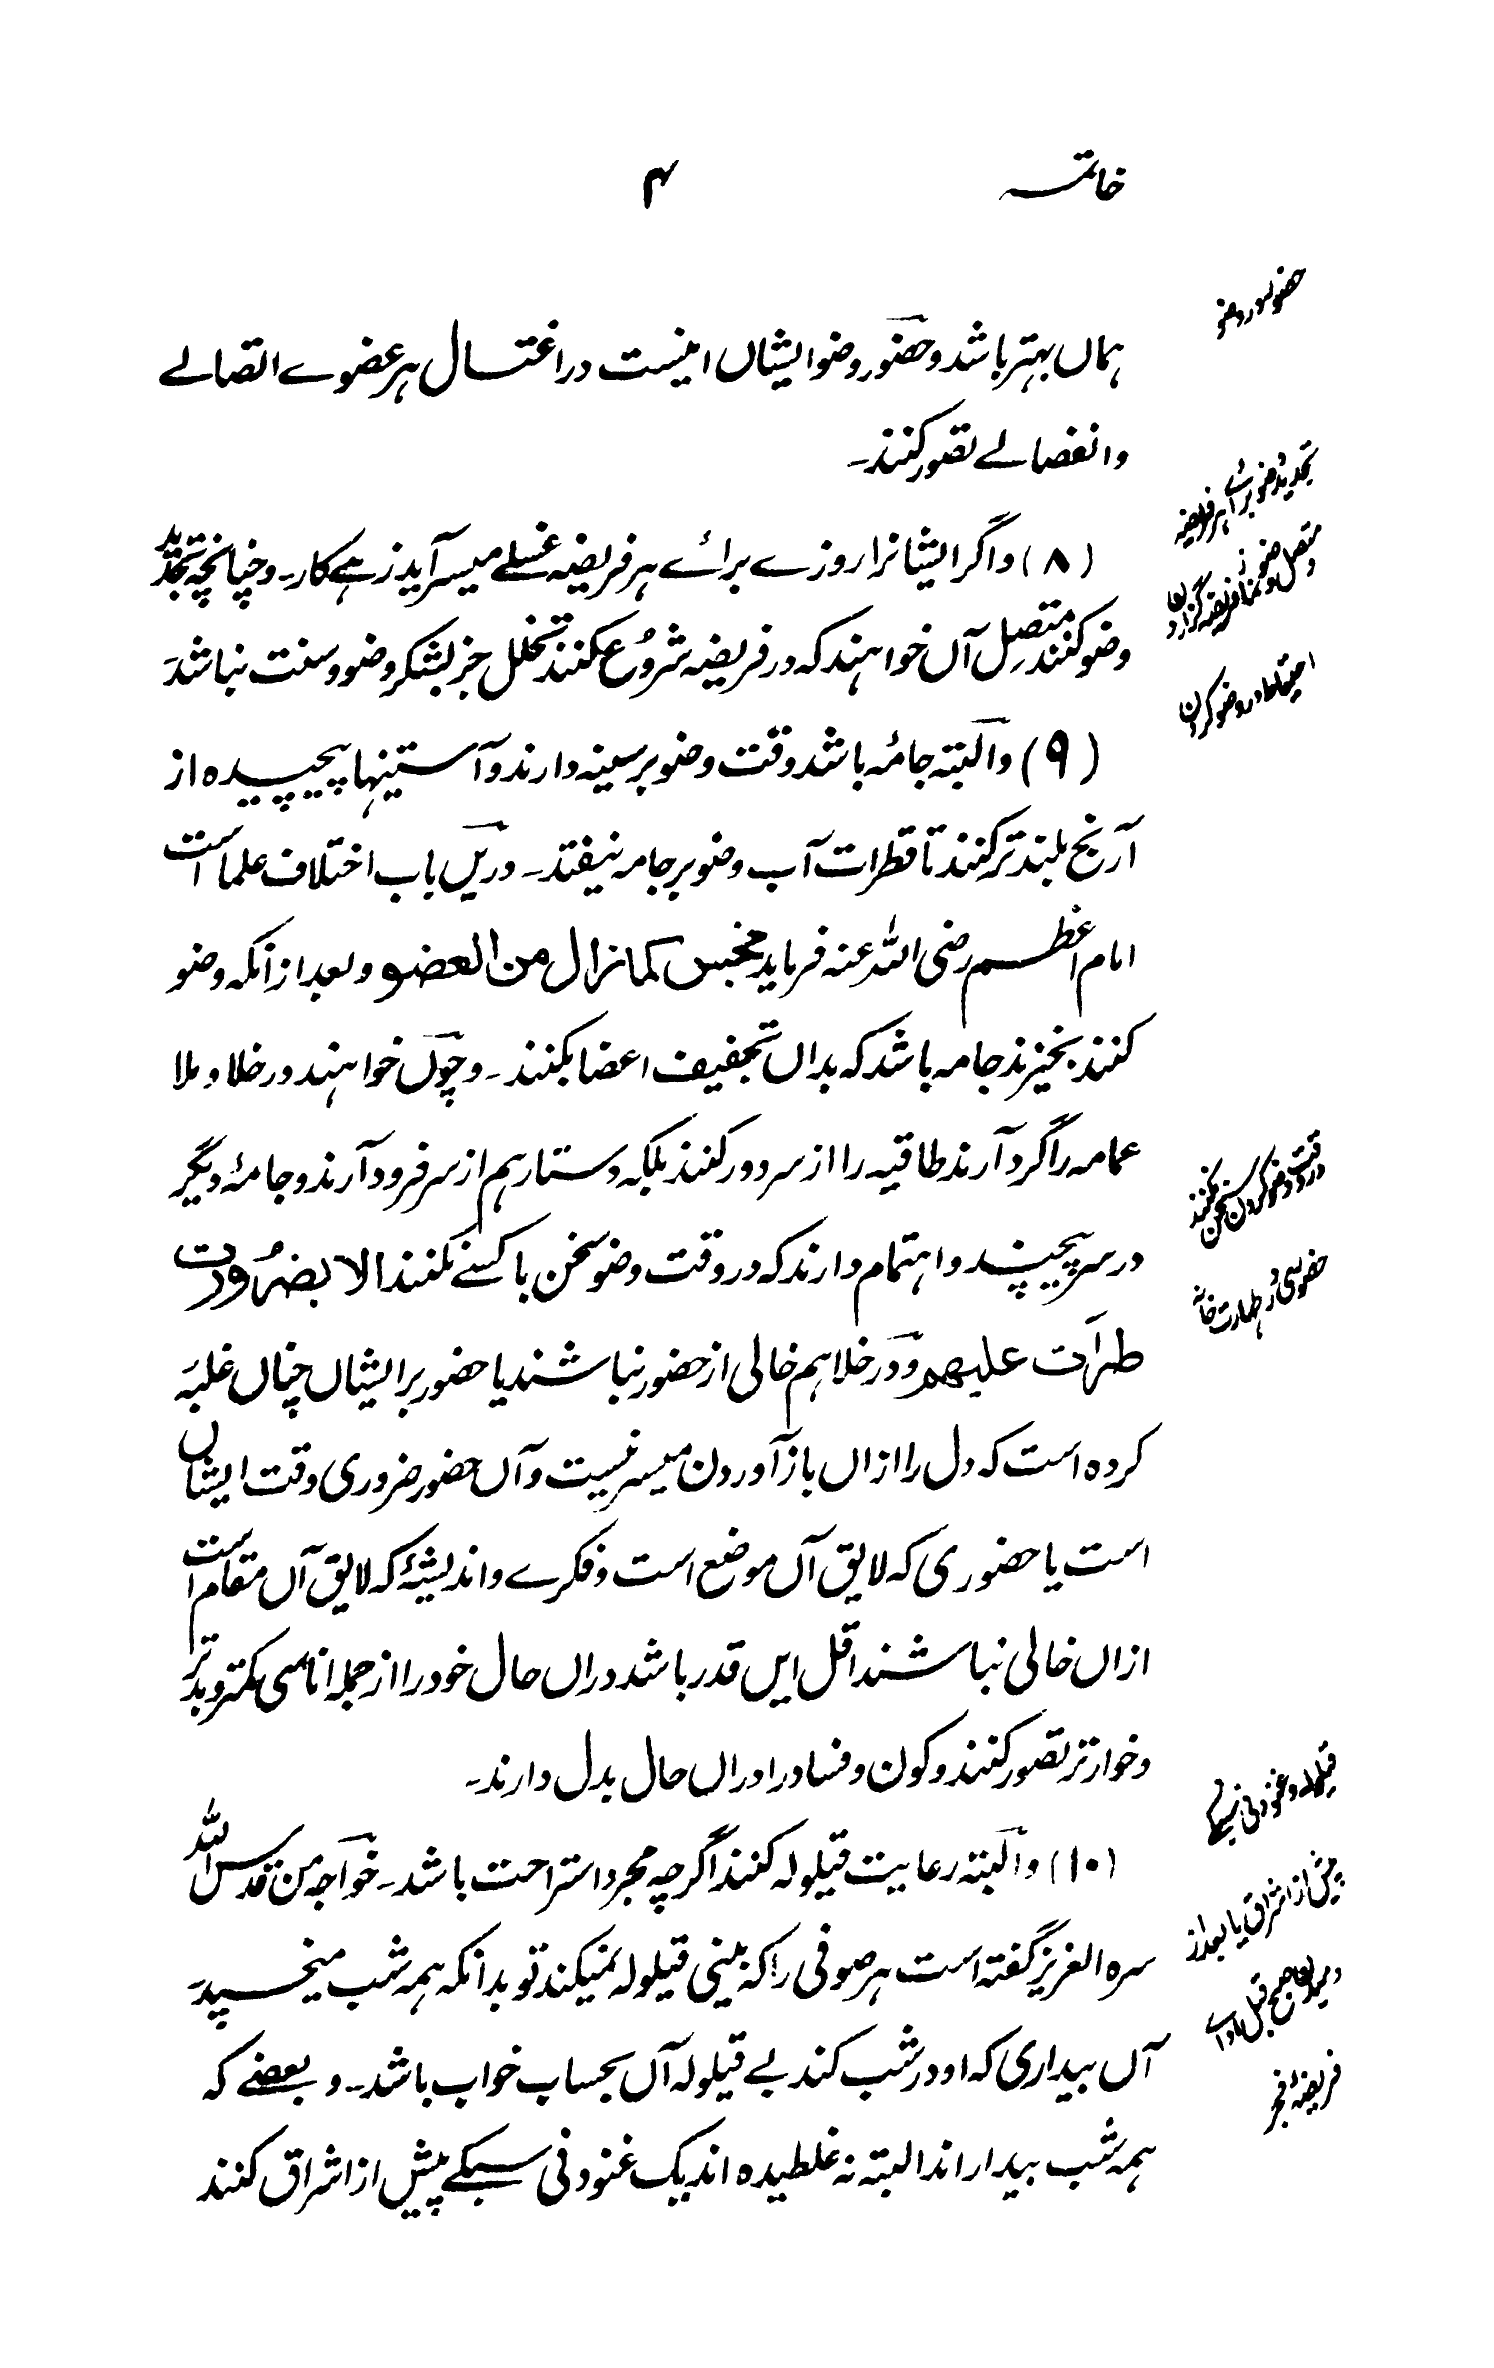 خاتمہ
۴
حضور در وضو
ہماں بہتر باشد و حضور وضو ایشاں اینست در اغتسال ہر عضوے اتصالے
وانفصالے تصور کنند۔
تجدید وضو برائے ہر فریضہ
(۸) و اگر ایشانرا روزے برائے ہر فریضہ غسلے میسر آید زہے کار۔ و چنانچہ تجدید
وضو کنند متصل آں خواہند کہ در فریضہ شروع کنند تخلل جز بشکر وضو و سنت نباشد
احتیاط در وضو کردن
(۹) و البتہ جامۂ باشد وقت وضو بر سینہ دارند و آستینہا پیچیدہ از
آرنج بلند تر کنند تا قطرات آب وضو بر جامہ نیفتد۔ دریں باب اختلاف علما است
امام اعظم رضی اللہ عنہ فرماید نجس کما نزال من العضو و بعد ازانکہ وضو
کنند بخیزند جامہ باشد کہ بداں تجفیف اعضا بکنند۔ و چوں خواہند در خلا و ملا
عمامہ را گرد آرند طاقیہ را از سر دور کنند بلکہ دستار ہم از سر فرود آرند و جامۂ دیگر
در وقت وضو کردن سخن نکنند
در سر پیچند و اہتمام دارند کہ در وقت وضو سخن با کسے نکنند الا بضرورت
طہارت خانہ
طرات علیھم و در خلا ہم خالی از حضور نباشند یا حضور بر ایشاں چناں غلبہ
کردہ است کہ دل را ازاں باز آوردن میسر نیست و آں حضور ضروری وقت ایشاں
است یا حضوری کہ لایق آں موضع است و فکرے و اندیشۂ کہ لایق آں مقام است
ازاں خالی نباشند اقل ایں قدر باشد دراں حال خود را از جملہ اناسی کمتر و بدتر
و خوار تر تصور کنند و کون و فساد را دراں حال بدل دارند۔
قیلولہ و غنودنی
(۱۰) و البتہ رعایت قیلولہ کنند اگرچہ مجرد استراحت باشد۔ خواجہ من قدس اللہ
پیش از اشراق یا بعد از
سرہ العزیز گفتہ است ہر صوفی را کہ بینی قیلولہ نمیکند تو بدانکہ ہمہ شب میخسپد
آں بیداری کہ او در شب کند بے قیلولہ آں بحساب خواب باشد۔ و بعضے کہ
فریضۂ فجر
ہمہ شب بیدار اند البتہ نہ غلطیدہ اند یک غنودنی سبکے پیش از اشراق کنند